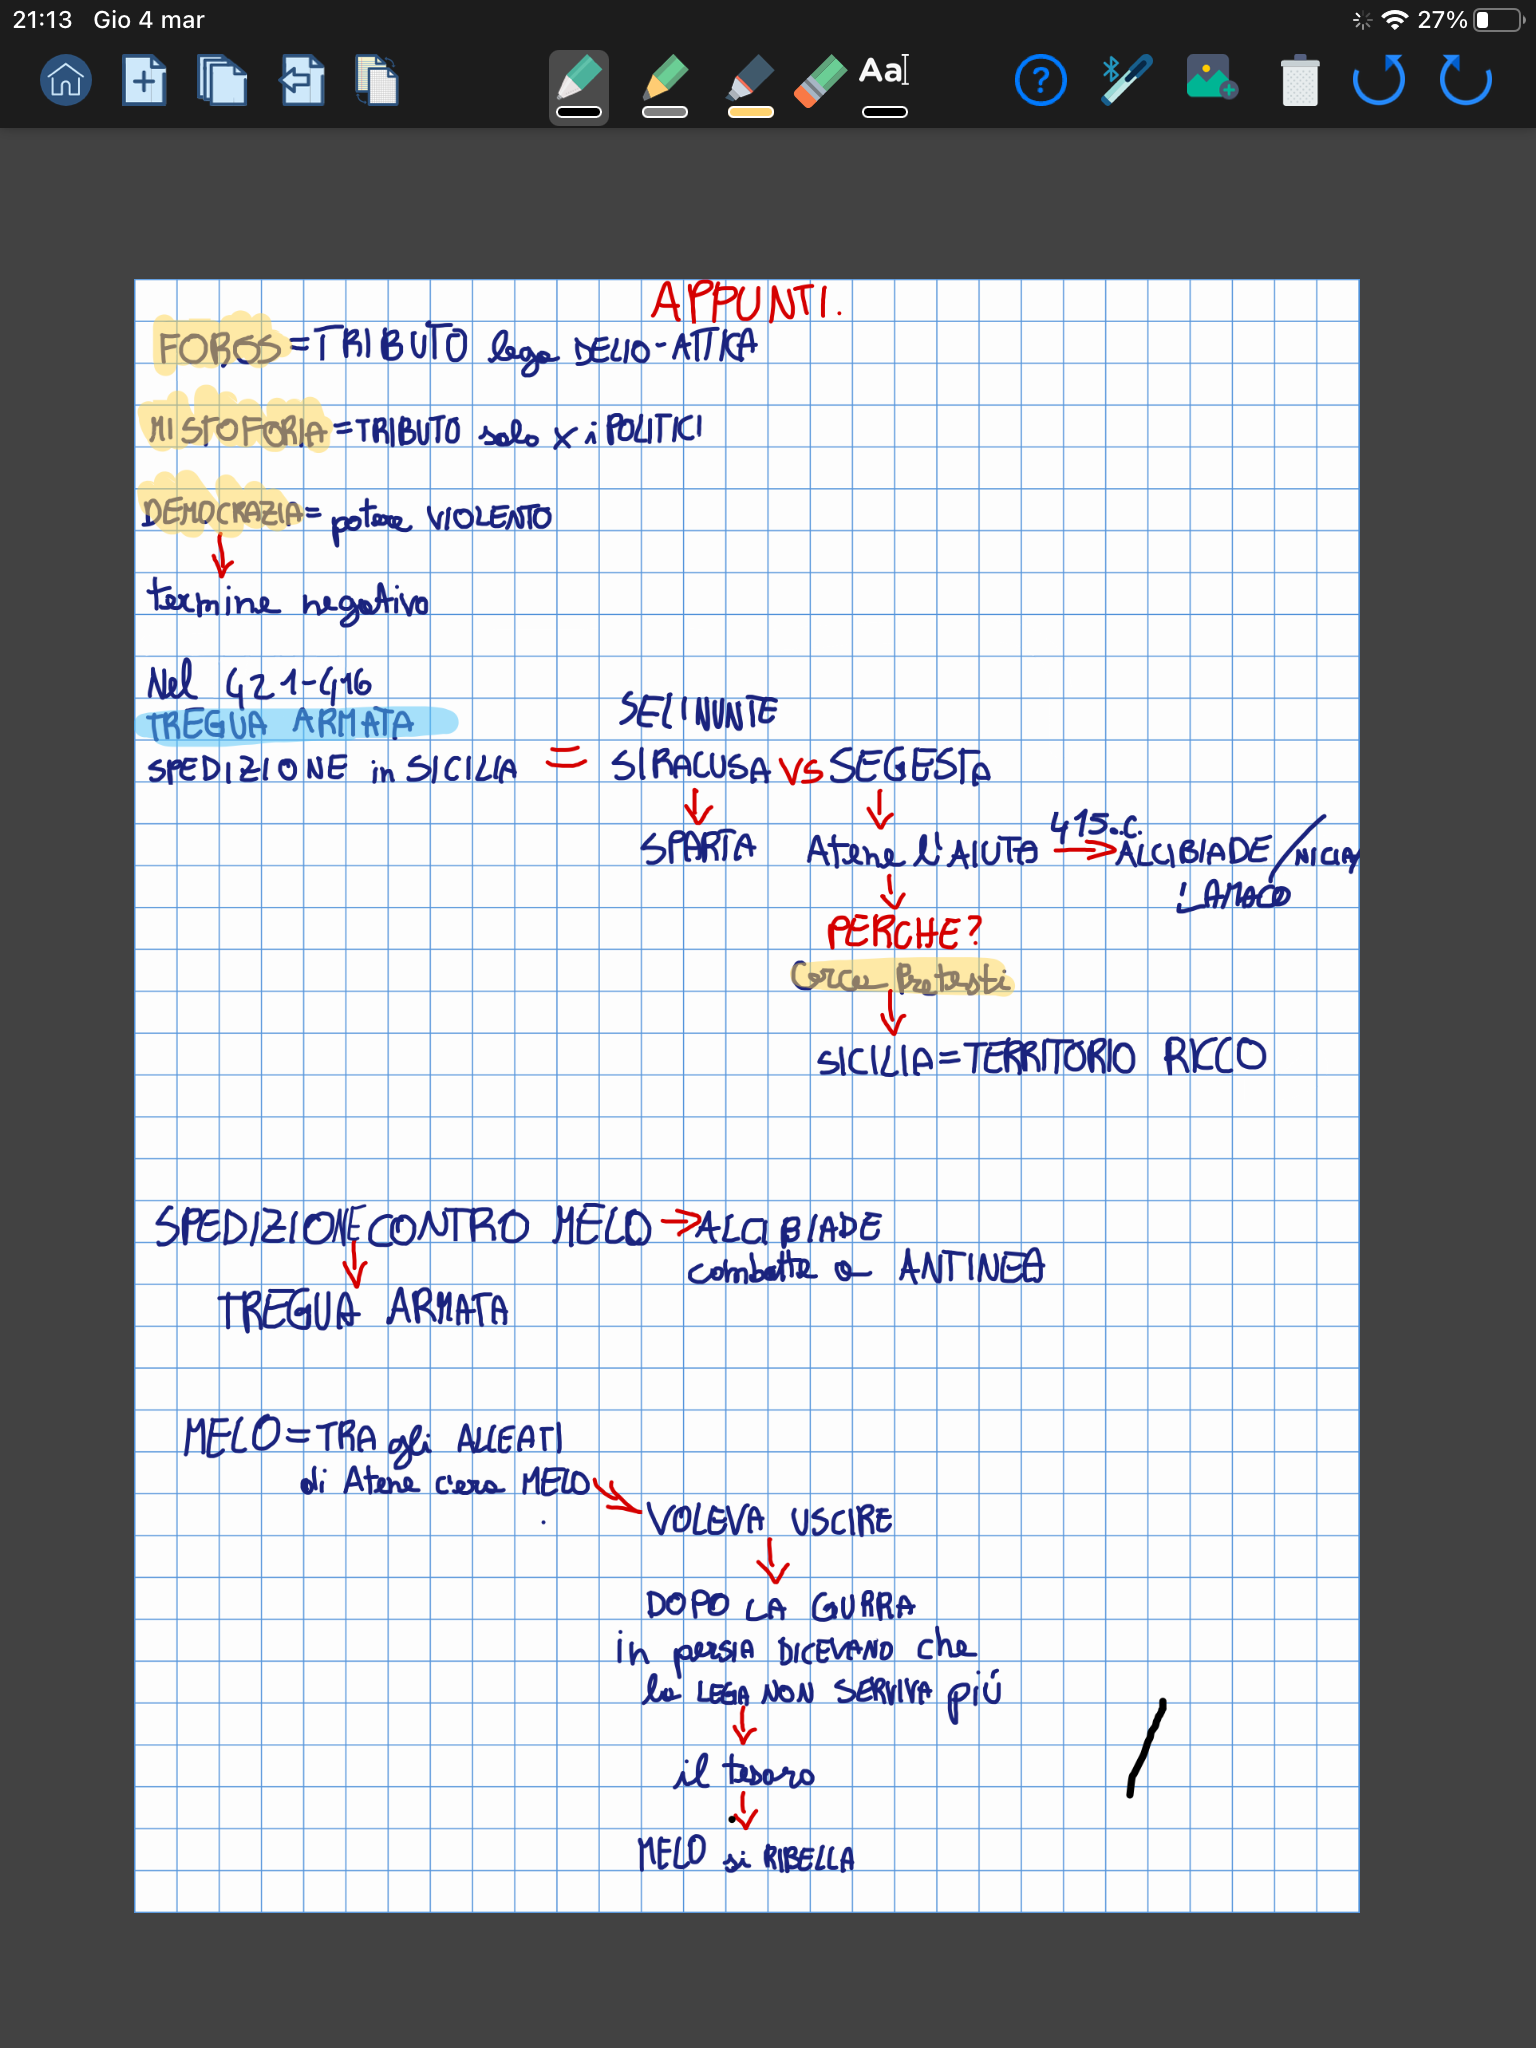 21:13 Gio 4 mar 27%
Aa
APPUNTI.
FOROS = TRIBUTO lega DELIO-ATTICA
MISTOFORIA = TRIBUTO solo x i POLITICI
DEMOCRAZIA = potere VIOLENTO
termine negativo
Nel 421-416
TREGUA ARMATA
SPEDIZIONE in SICILIA =
SELINUNTE
SIRACUSA VS SEGESTA
SPARTA
Atene l'AIUTA
415.c.
ALCIBIADE / NICIA
LAMACO
PERCHE?
Cerca Pretesti
SICILIA = TERRITORIO RICCO
SPEDIZIONE CONTRO MELO
ALCIBIADE
combatte a ANTINEA
TREGUA ARMATA
MELO = TRA gli ALLEATI
di Atene c'era MELO
VOLEVA USCIRE
DOPO LA GURRA
in persIA DICEVANO che
la LEGA NON SERVIVA più
il tesoro
MELO si RIBELLA